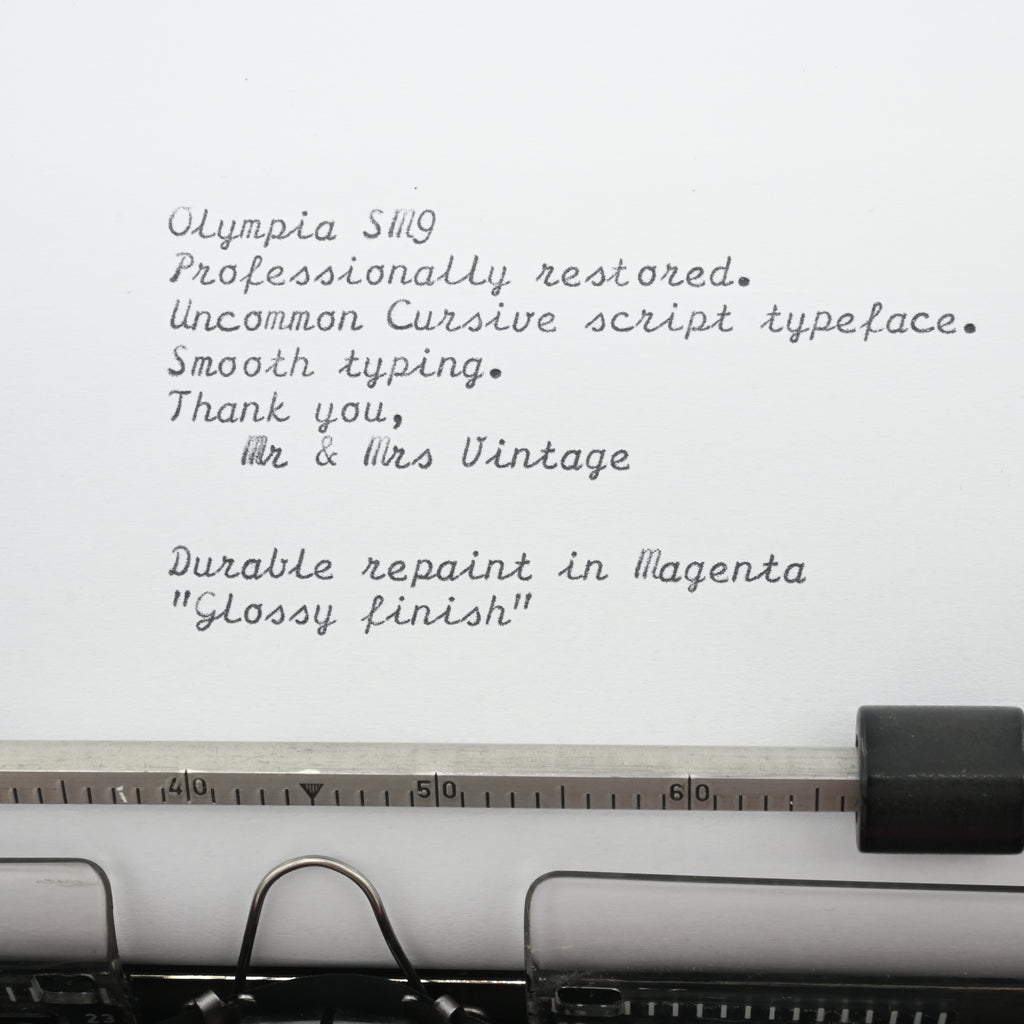 Olympia SM9
Professionally restored.
Uncommon Cursive script typeface.
Smooth typing.
Thank you,
Mr & Mrs Vintage
Durable repaint in Magenta
"Glossy finish"
40 50 60
23